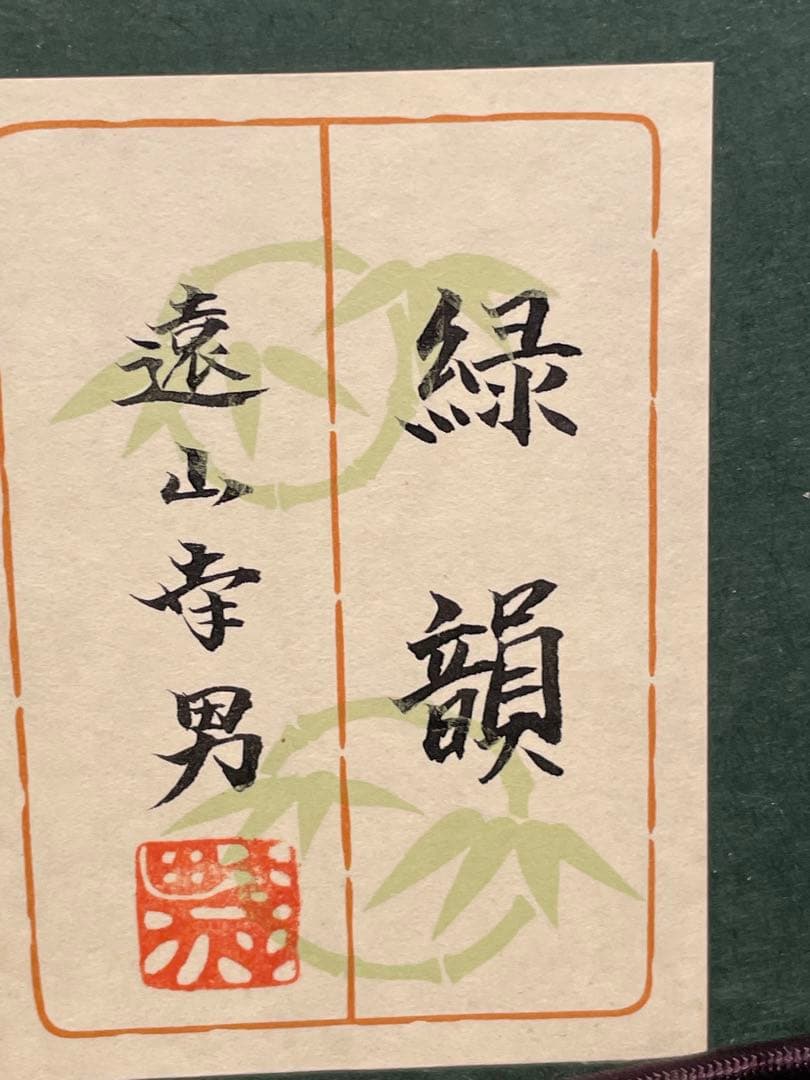 緑韻
遠山幸男